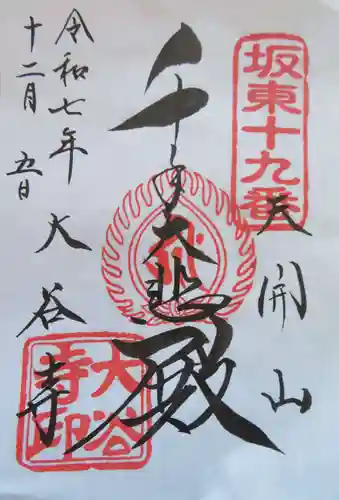 坂東十九番
天開山
千手大悲殿
令和七年
十二月五日
大谷寺
大谷寺印